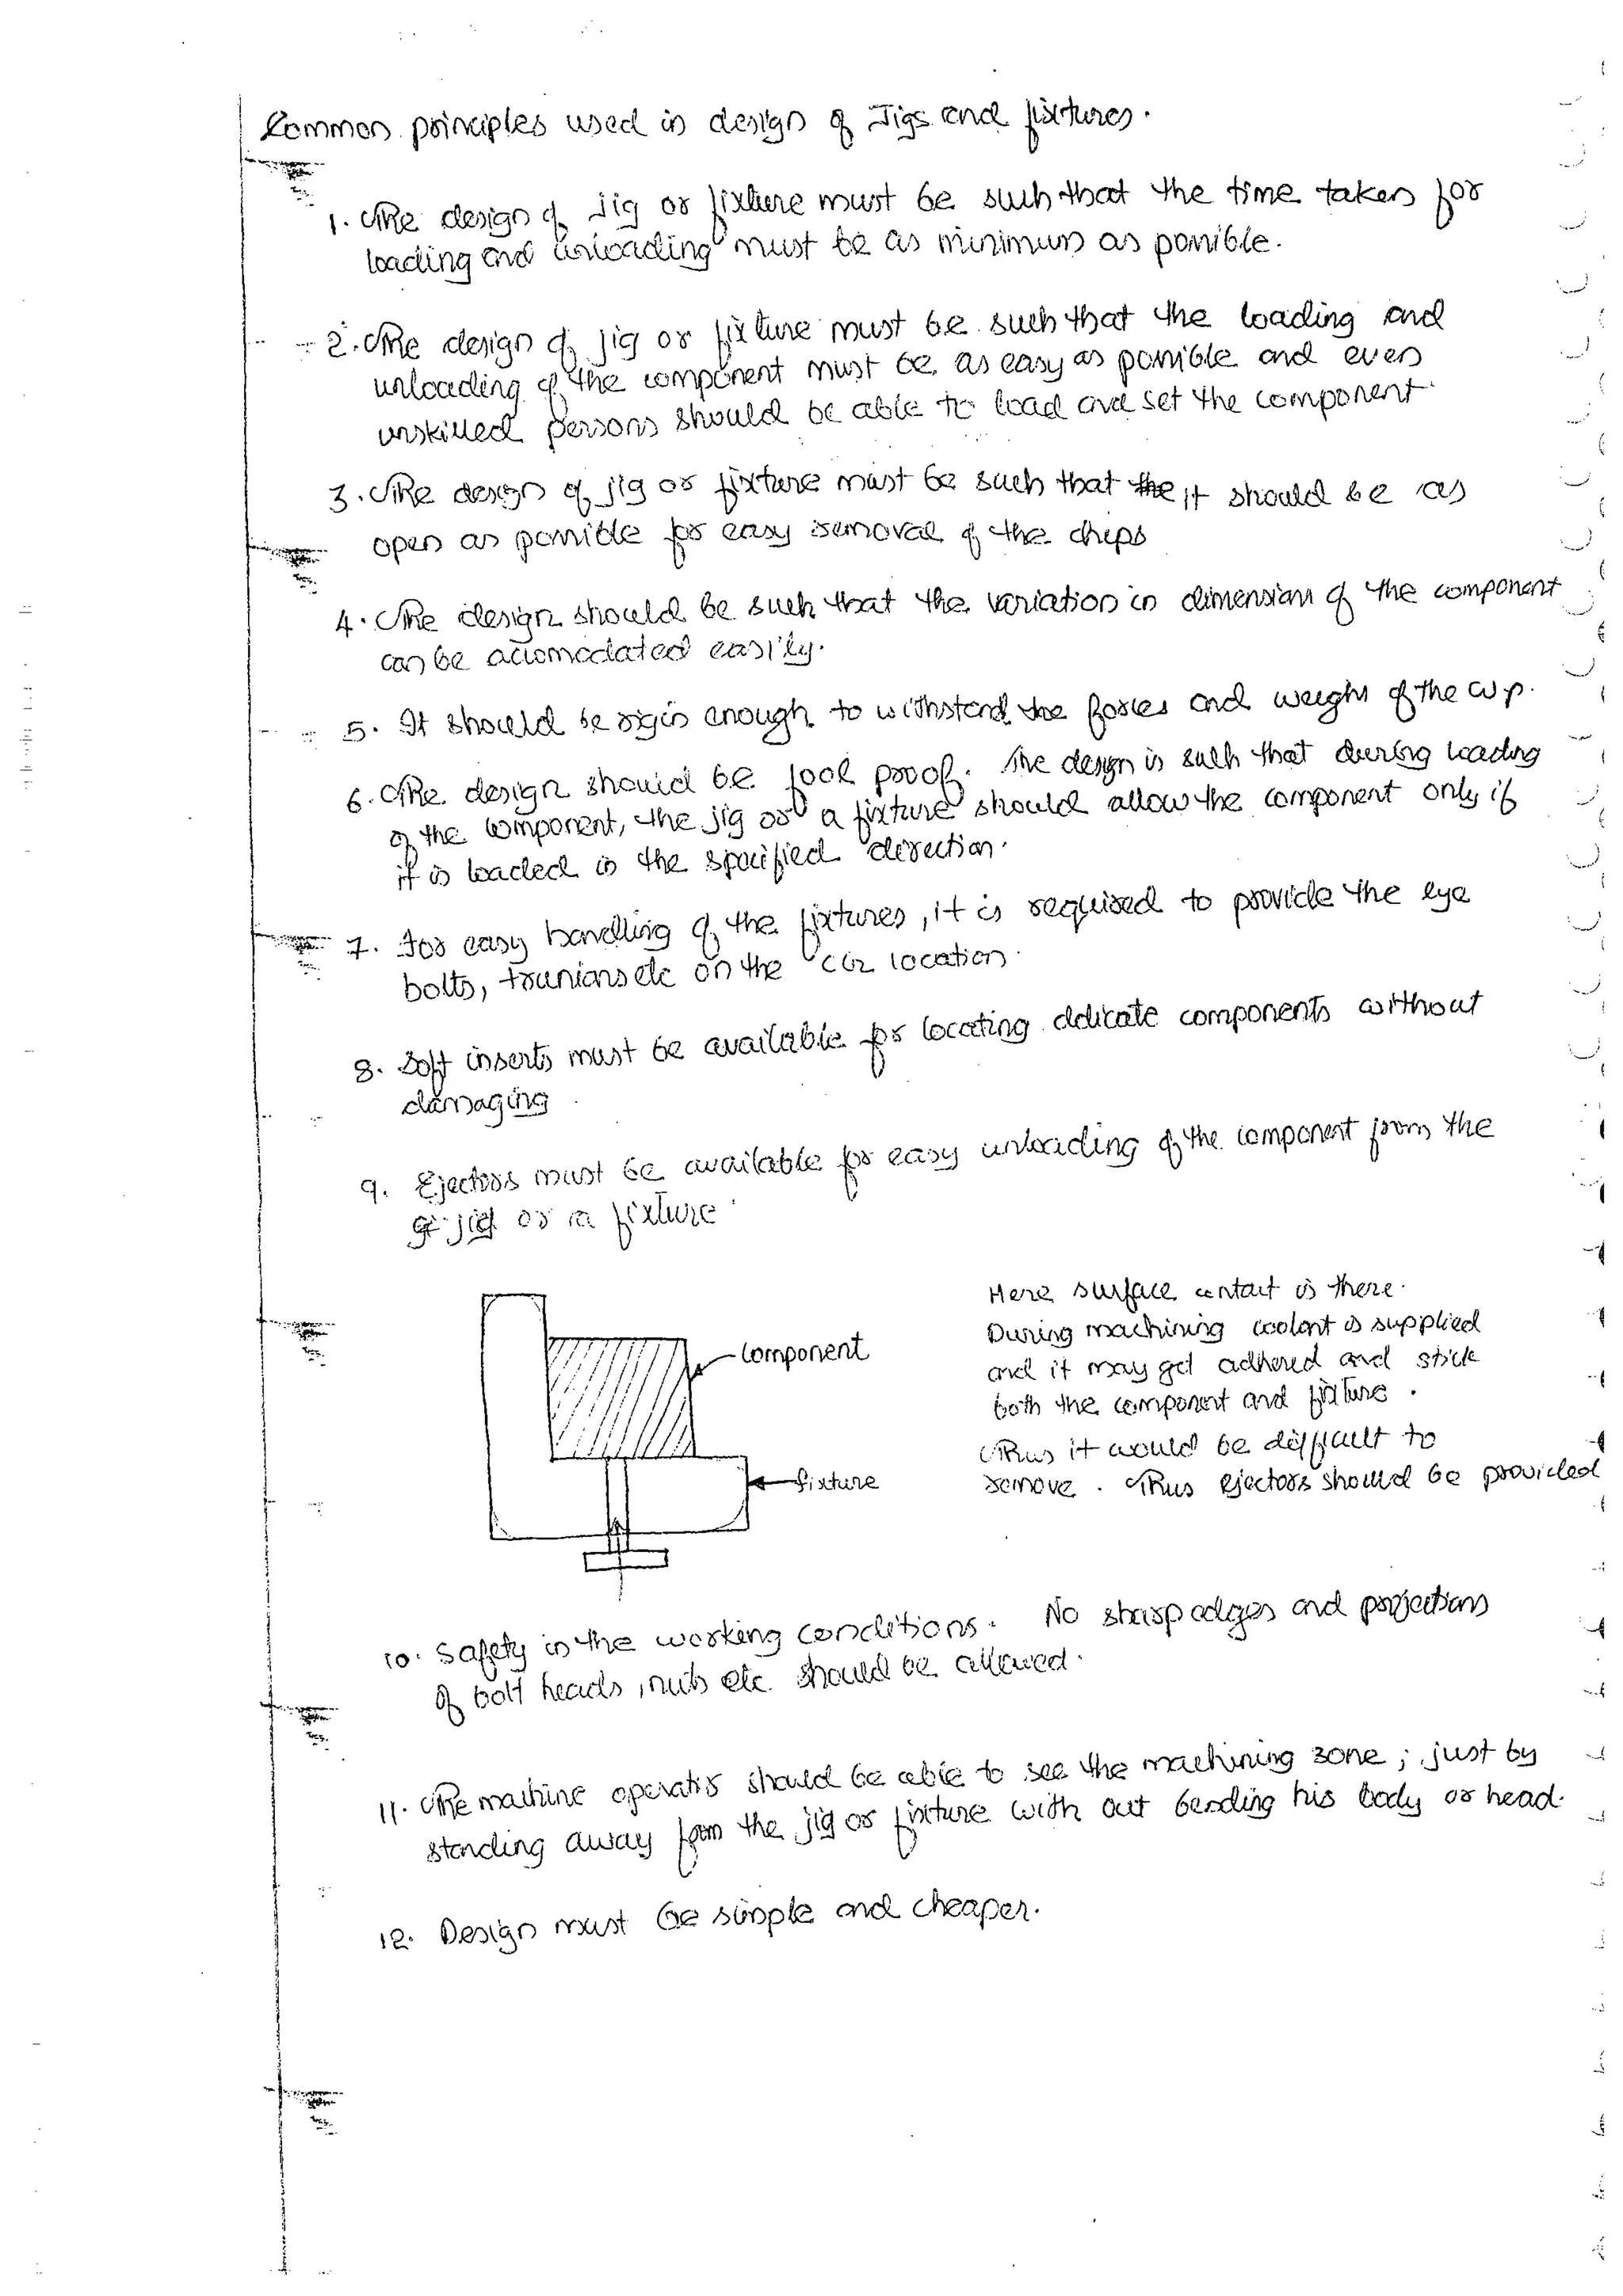 Common principles used in design of Jigs and fixtures.
1. The design of jig or fixture must be such that the time taken for
loading and unloading must be as minimum as possible.
2. The design of jig or fixture must be such that the loading and
unloading of the component must be as easy as possible and even
unskilled persons should be able to load and set the component
3. The design of jig or fixture must be such that the it should be as
open as possible for easy removal of the chips
4. The design should be such that the variation in dimension of the component
can be accomodated easily.
5. It should be rigid enough to withstand the forces and weight of the w/p.
6. The design should be fool proof. The design is such that during loading
of the component, the jig or a fixture should allow the component only if
it is loaded in the specified direction.
7. For easy handling of the fixtures, it is required to provide the eye
bolts, trunions etc on the CG location.
8. Soft inserts must be available for locating delicate components without
damaging
9. Ejectors must be available for easy unloading of the component from the
jig or a fixture
Here surface contact is there.
During machining coolant is supplied
component
and it may get adhered and stick
both the component and fixture.
Thus it would be difficult to
fixture
remove. Thus ejectors should be provided
10. Safety in the working conditions. No sharp edges and projections
of bolt heads, nuts etc should be allowed.
11. The machine operator should be able to see the machining zone; just by
standing away from the jig or fixture with out bending his body or head.
12. Design must be simple and cheaper.